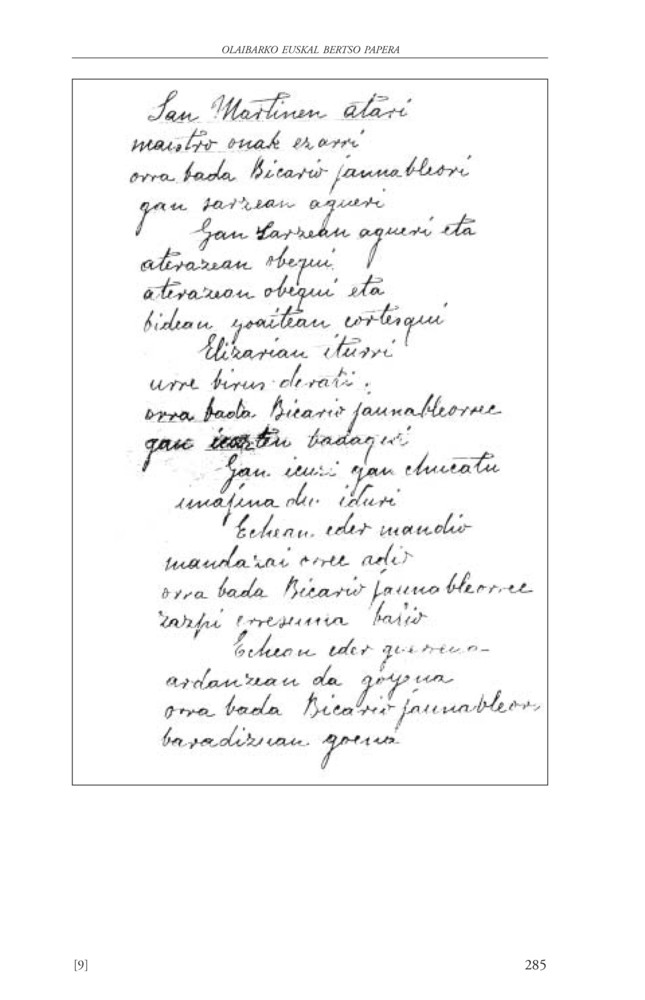 OLAIBARKO EUSKAL BERTSO PAPERA
San Martinen atari
maistro onak ezarri
orra bada Bicario jaunableori
gan sarzean agueri
Gan sarzean agueri eta
aterazean obequi
aterazean obequi eta
bidean yoaitean cortesqui
Elizarian iturri
urre birus derati
orra bada Bicario jaunableorrec
gan badaqui
Gan icuzi gan chucatu
imajina du iduri
Echean eder mandio
mandazai orrec adio
orra bada Bicario jaunableorrec
zazpi erresuma balio
Echean eder
ardanzean da goyena
orra bada Bicario jaunableor
baradizuan goena
[9]
285